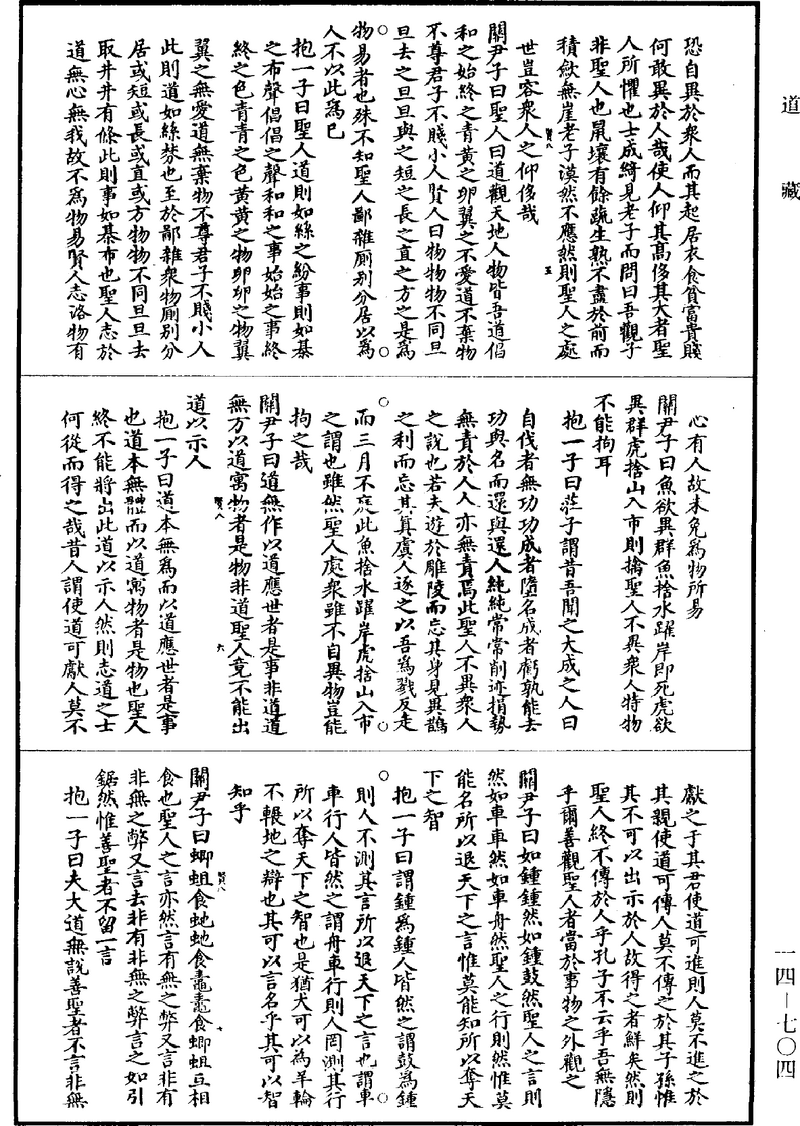 道藏
恐自異於衆人而其起居衣食貧富貴賤
何敢異於人哉使人仰其高侈其大者聖
人所懼也士成綺見老子而問曰吾觀子
非聖人也鼠壤有餘蔬生熟不盡於前而
積斂無崖老子漠然不應然則聖人之處
世豈容衆人之仰侈哉
關尹子曰聖人曰道觀天地人物皆吾道倡
和之始終之青黄之卵翼之不愛道不棄物
不尊君子不賤小人賢人曰物物物不同旦
旦去之旦旦與之短之長之直之方之是爲
物易者也殊不知聖人鄙雜厠别分居以爲
人不以此爲己
抱一子曰聖人道則如絲之紛事則如棊
之布聲倡倡之聲和和之事始始之事終
終之色青青之色黄黄之物卵卵之物翼
翼之無愛道無棄物不尊君子不賤小人
此則道如絲棼也至於鄙雜衆物厠别分
居或短或長或直或方物物不同旦旦去
取井井有條此則事如棊布也聖人志於
道無心無我故不爲物易賢人志洛物有
心有人故未免爲物所易
關尹子曰魚欲異群魚捨水躍岸即死虎欲
異群虎捨山入市則擒聖人不異衆人特物
不能拘耳
抱一子曰莊子謂昔吾聞之大成之人曰
自伐者無功功成者墮名成者虧孰能去
功與名而還與還人純純常常削迹捐勢
無責於人人亦無責焉此聖人不異衆人
之說也若夫遊於雕陵而忘其身見異鵲
之利而忘其真虞人逐之以吾爲戮反走
而三月不庭此魚捨水躍岸虎捨山入市
之謂也雖然聖人處衆雖不自異物豈能
拘之哉
關尹子曰道無作以道應世者是事非道道
無方以道寓物者是物非道聖人竟不能出
道以示人
抱一子曰道本無爲而以道應世者是事
也道本無體而以道寓物者是物也聖人
終不能將出此道以示人然則志道之士
何從而得之哉昔人謂使道可獻人莫不
獻之于其君使道可進則人莫不進之於
其親使道可傳人莫不傳之於其子孫惟
其不可以出示於人故得之者鮮矣然則
聖人終不傳於人乎孔子不云乎吾無隱
乎爾善觀聖人者當於事物之外觀之
關尹子曰如鍾鍾然如鍾鼓然聖人之言則
然如車車然如車舟然聖人之行則然惟莫
能名所以退天下之言惟莫能知所以奪天
下之智
抱一子曰謂鍾爲鍾人皆然之謂鼓爲鍾
則人不測其言所以退天下之言也謂車
車行人皆然之謂舟車行則人罔測其行
所以奪天下之智也是猶犬可以為羊輪
不輾地之辯也其可以言名乎其可以智
知乎
關尹子曰蝍蛆食虵虵食鼃鼃食蝍蛆互相
食也聖人之言亦然言有無之弊又言非有
非無之弊又言去非有非無之弊言之如引
鋸然惟善聖者不留一言
抱一子曰夫大道無說善聖者不言非無
賢八
五
賢八
六
賢八
七
一四—七〇四